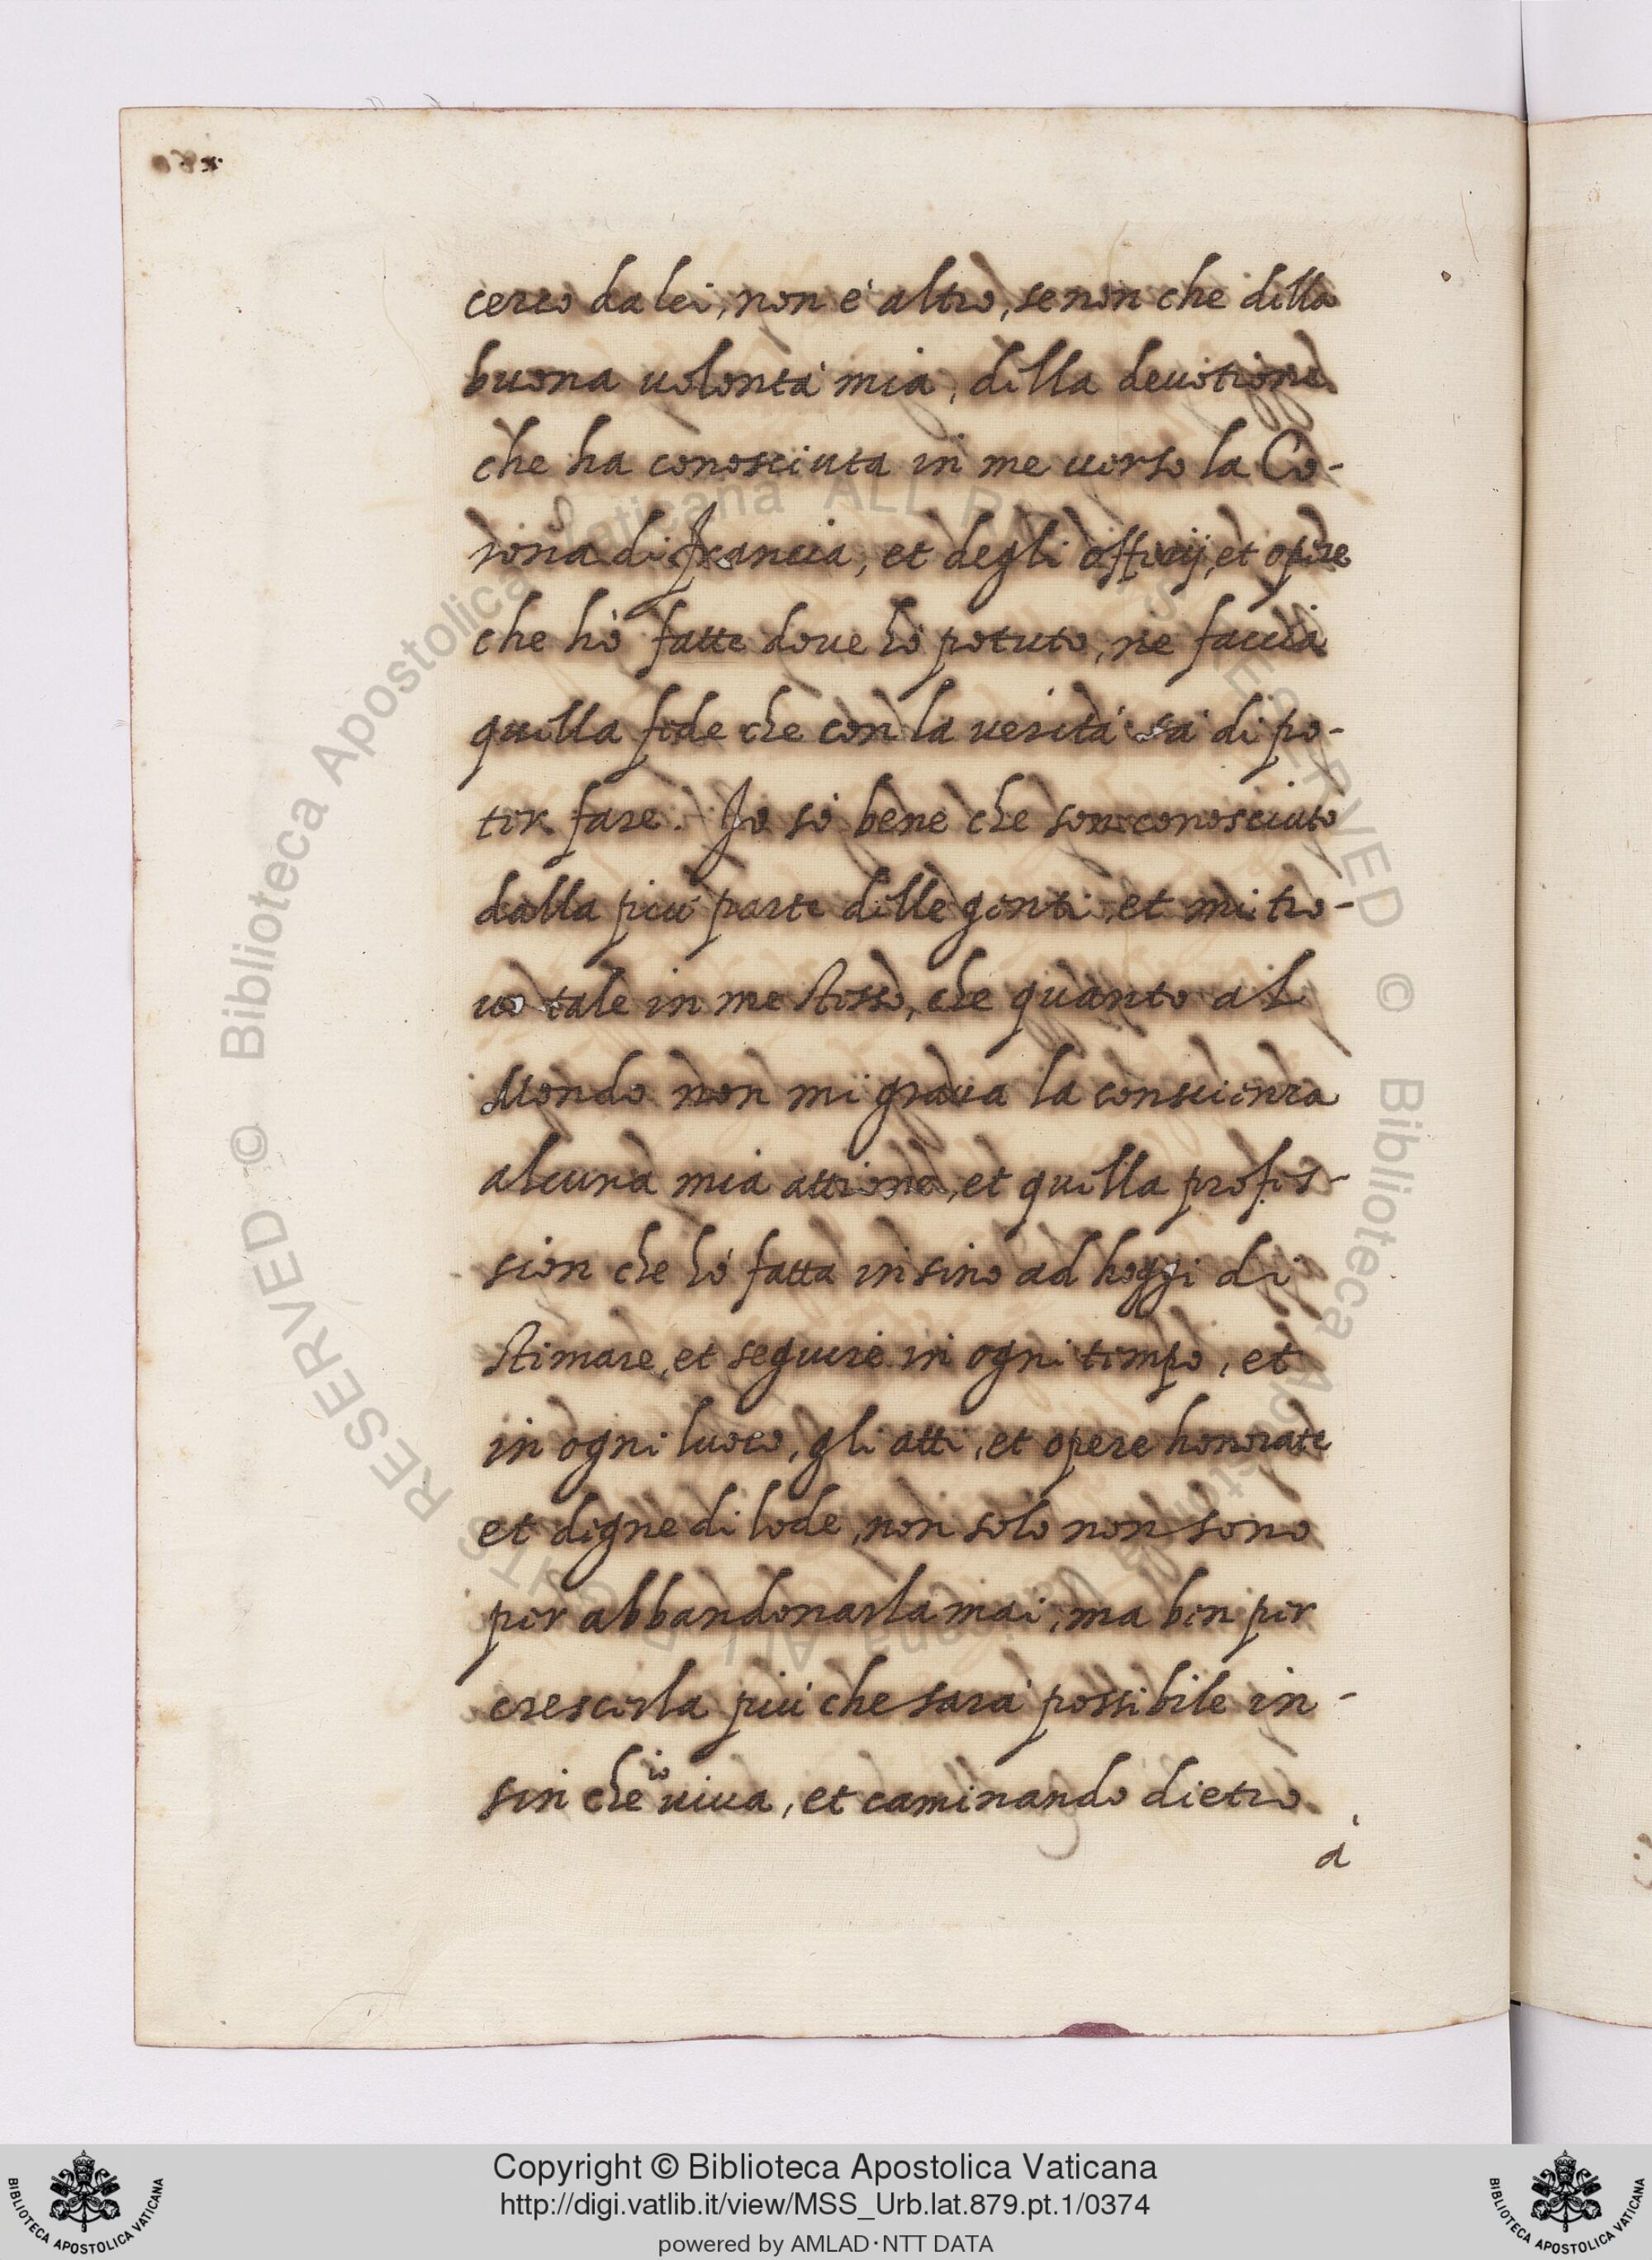 cerco da lei, non è altro, se non che della
buona uolontà mia, della deuotione
che ha conosciuta in me uerso la Co-
rona di Francia, et degli officij, et opere
che hò fatte doue hò potuto, ne faccia
quella fede che con la verità sà di po-
ter fare. Io sò bene che son conosciuto
dalla più parte delle genti, et mi tro-
uo tale in me stesso, che quanto al
Mondo non mi graua la conscienza
alcuna mia attione, et quella profes-
sion che hò fatta insino ad hoggi di
stimare, et seguire in ogni tempo, et
in ogni luoco, gli atti, et opere honorate
et degne di lode, non solo non sono
per abbandonarla mai, ma ben per
crescerla più che sarà possibile in-
sin che io uiua, et caminando dietro
à
© Biblioteca Apostolica Vaticana ALL RIGHTS RESERVED © Biblioteca Apostolica Vaticana ALL RIGHTS RESERVED
Copyright © Biblioteca Apostolica Vaticana
http://digi.vatlib.it/view/MSS_Urb.lat.879.pt.1/0374
powered by AMLAD·NTT DATA
BIBLIOTECA APOSTOLICA VATICANA
BIBLIOTECA APOSTOLICA VATICANA